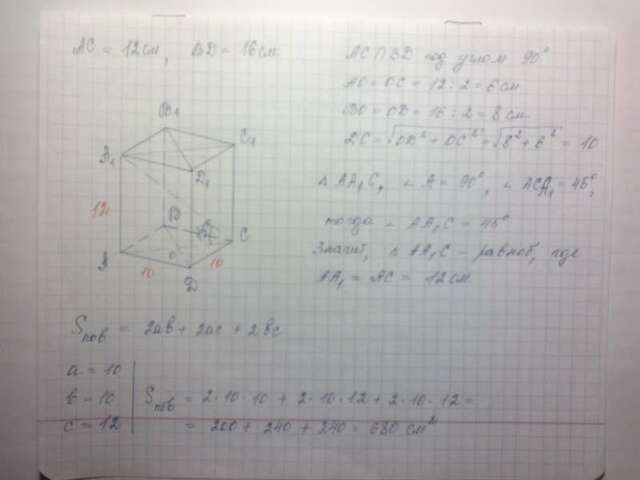 AC = 12 см, BD = 16 см
AC ∩ BD под углом 90°
AO = OC = 12 : 2 = 6 см
BO = OD = 16 : 2 = 8 см
DC = √OD² + OC² = √8² + 6² = 10
△ AA₁C, ∠ A = 90°, ∠ ACA₁ = 45°,
тогда ∠ AA₁C = 45°
Значит, △ AA₁C – равноб, где
AA₁ = AC = 12 см
B₁
C₁
A₁
D₁
12
B
C
A
O
10
10
D
Sпов = 2ab + 2ac + 2bc
a = 10
b = 10
c = 12
Sпов = 2·10·10 + 2·10·12 + 2·10·12 =
= 200 + 240 + 240 = 680 см²